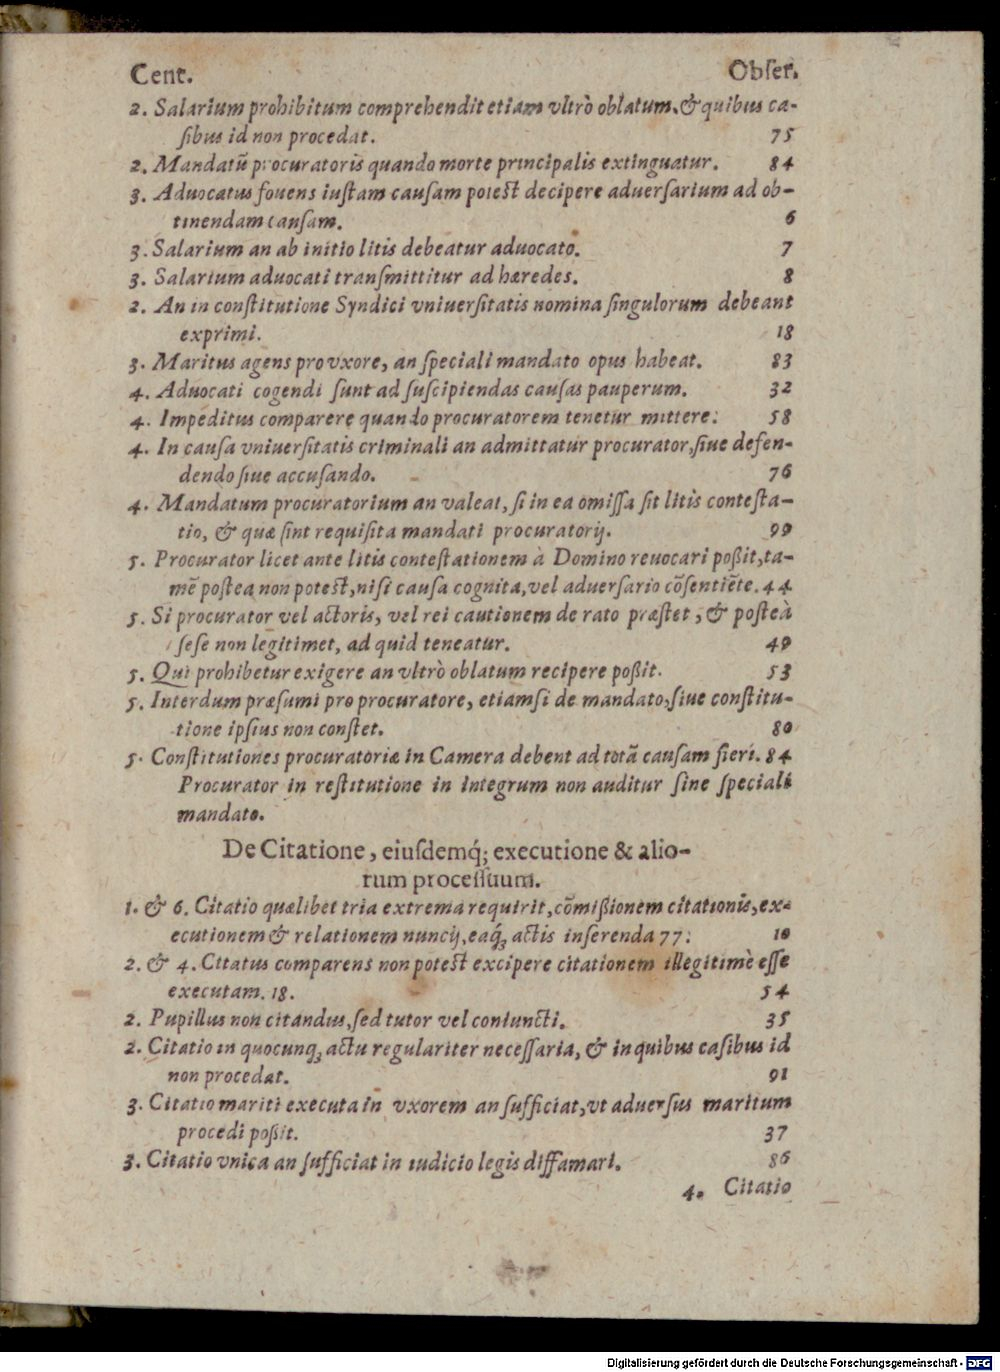 Cent. Obſer.
2. Salarium prohibitum comprehendit etiam vltrò oblatum, & quibus ca-
ſibus id non procedat. 75
2. Mandatũ procuratoris quando morte principalis extinguatur. 84
3. Aduocatus fouens iuſtam cauſam poteſt decipere aduerſarium ad ob-
tinendam cauſam. 6
3. Salarium an ab initio litis debeatur aduocato. 7
3. Salarium aduocati tranſmittitur ad hæredes. 8
2. An in conſtitutione Syndici vniuerſitatis nomina ſingulorum debeant
exprimi. 18
3. Maritus agens pro vxore, an ſpeciali mandato opus habeat. 83
4. Aduocati cogendi ſunt ad ſuſcipiendas cauſas pauperum. 32
4. Impeditus comparere quando procuratorem tenetur mittere. 58
4. In cauſa vniuerſitatis criminali an admittatur procurator, ſiue defen-
dendo ſiue accuſando. 76
4. Mandatum procuratorium an valeat, ſi in ea omiſſa ſit litis conteſta-
tio, & quæ ſint requiſita mandati procuratorij. 99
5. Procurator licet ante litis conteſtationem à Domino reuocari poßit, ta-
mẽ poſtea non poteſt, niſi cauſa cognita, vel aduerſario cõſentiẽte. 44
5. Si procurator vel actoris, vel rei cautionem de rato præſtet, & poſteà
ſeſe non legitimet, ad quid teneatur. 49
5. Qui prohibetur exigere an vltrò oblatum recipere poßit. 53
5. Interdum præſumi pro procuratore, etiamſi de mandato, ſiue conſtitu-
tione ipſius non conſtet. 80
5. Conſtitutiones procuratoriæ in Camera debent ad totã cauſam fieri. 84
Procurator in reſtitutione in integrum non auditur ſine ſpeciali
mandato.
De Citatione, eiuſdemq́; executione & alio-
rum proceſſuum.
1. & 6. Citatio quælibet tria extrema requirit, cõmißionem citationis, ex-
ecutionem & relationem nuncij, eaq́; actis inſerenda 77. 10
2. & 4. Citatus comparens non poteſt excipere citationem illegitimè eſſe
executam. 18. 54
2. Pupillus non citandus, ſed tutor vel coniuncti. 35
2. Citatio in quocunq; actu regulariter neceſſaria, & in quibus caſibus id
non procedat. 91
3. Citatio mariti executa in vxorem an ſufficiat, vt aduerſus maritum
procedi poßit. 37
3. Citatio vnica an ſufficiat in iudicio legis diffamari. 86
4. Citatio
Digitalisierung gefördert durch die Deutsche Forschungsgemeinschaft - DFG